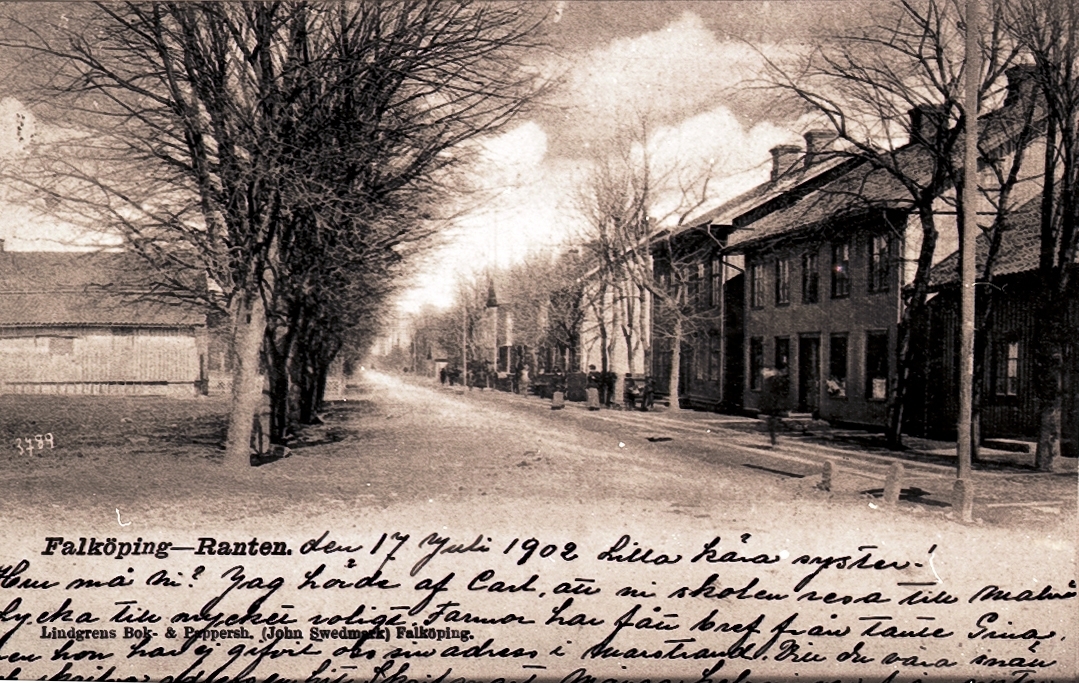 3789
Falköping—Ranten. den 17 Juli 1902 Lilla kära syster!
Hur må Ni? Jag hörde af Carl, att ni skolen resa till
lycka till mycket roligt. Farmor har fått bref från tante Gina,
Lindgrens Bok- & Pappersh. (John Swedmark) Falköping.
men hon har ej gifvit oss sin adress i Marstrand. Vill du vara snäll